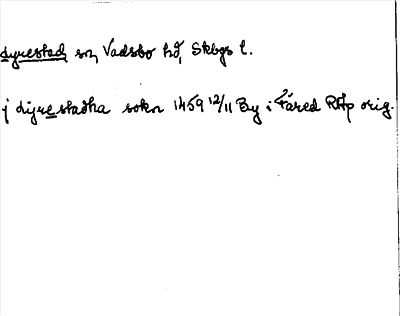 dyrestad sn, Vadsbo hd, Skbgs l.
j dyrestadha sokn 1459 12/11 By i Fåred RAp orig.